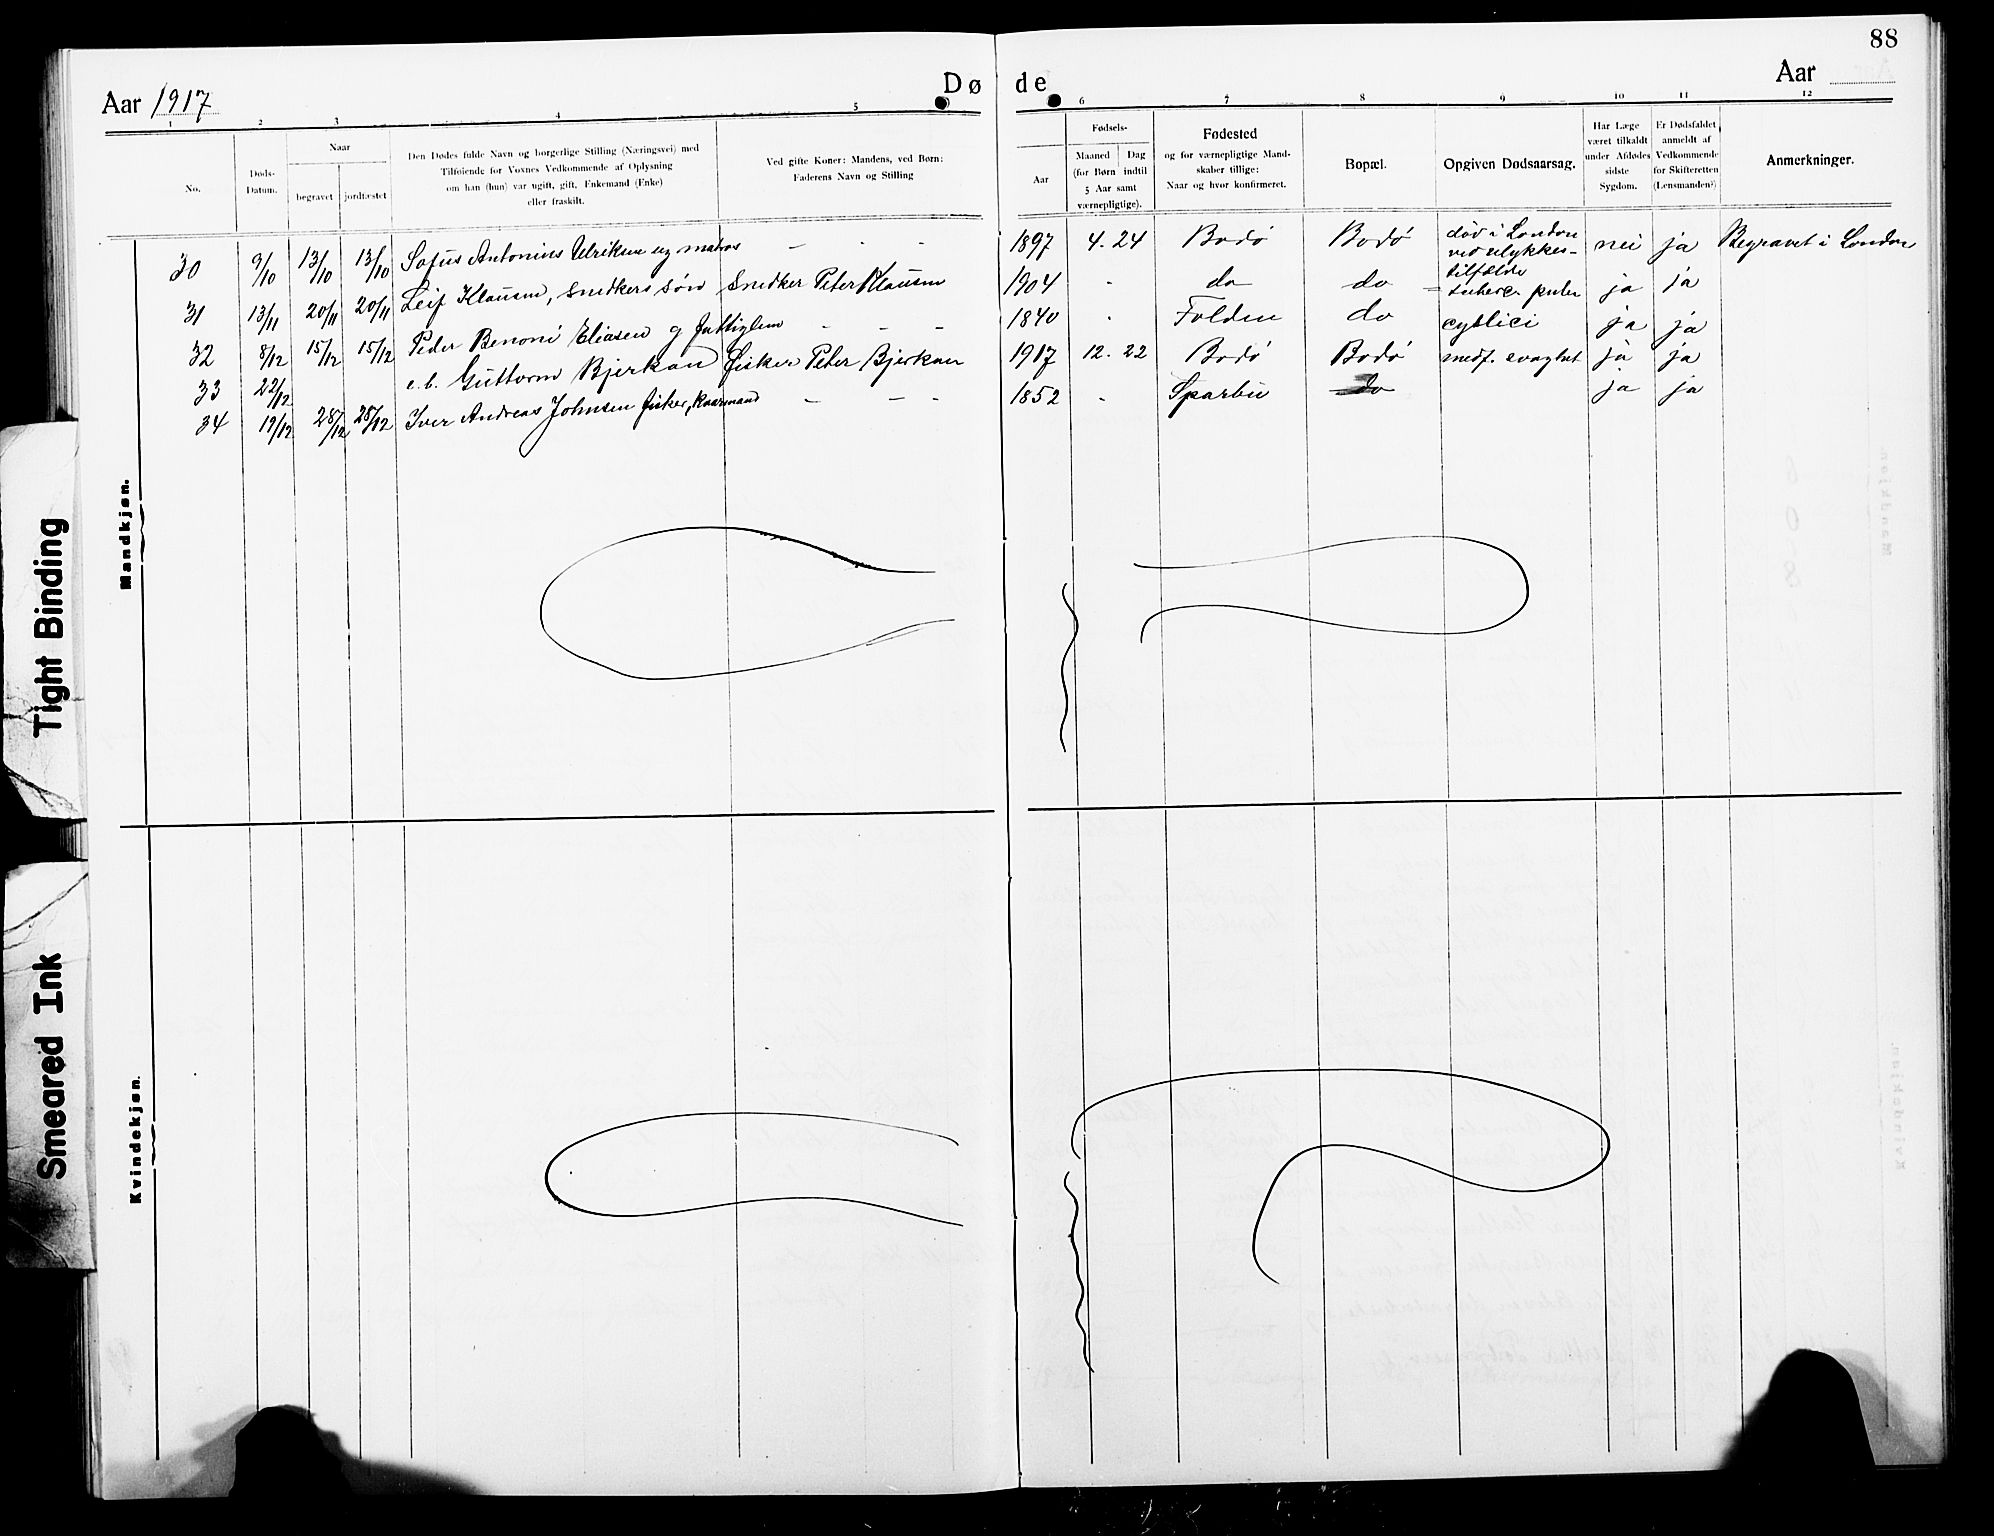 88
Aar 1917
Døde
Aar
1 2 3 4 5 6 7 8 9 10 11 12
No.
Døds-
Datum.
Naar
begravet
jordfæstet
Den Dødes fulde Navn og borgerlige Stilling (Næringsvei) med
Tilføiende for Voxnes Vedkommende af Oplysning
om han (hun) var ugift, gift, Enkemand (Enke)
eller fraskilt.
Ved gifte Koner: Mandens, ved Børn:
Faderens Navn og Stilling
Fødsels-
Aar
Maaned Dag
(for Børn indtil
5 Aar samt
værnepligtige).
Fødested
og for værnepligtige Mand-
skaber tillige:
Naar og hvor konfirmeret.
Bopæl.
Opgiven Dødsaarsag.
Har Læge
været tilkaldt
under Afdødes
sidste
Sygdom.
Er Dødsfaldet
anmeldt af
Vedkommende
for Skifteretten
(Lensmanden?)
Anmerkninger.
30 9/10 13/10 13/10 Sofus Antonius Ulriksen ug matros - - - 1897 4. 24 Bodø Bodø død i London
ved ulykkes-
tilfælde nei ja Begravet i London
31 13/11 20/11 20/11 Leif Klausen, snedkers søn Snedker Peter Klausen 1904 - do do ja ja
32 8/12 15/12 15/12 Peder Benoni Eliasen g - - - 1840 - Folden do ja ja
33 22/12 e.b. Guttorm Bjerkan Fisker Peter Bjerkan 1917 12. 22 Bodø Bodø medf. svaghet ja ja
34 19/12 28/12 28/12 Iver Andreas Johnsen fisker, - - - 1852 - Sparbu do ja ja
Mandkjøn.
Kvindekjøn.
Tight Binding
Smeared Ink